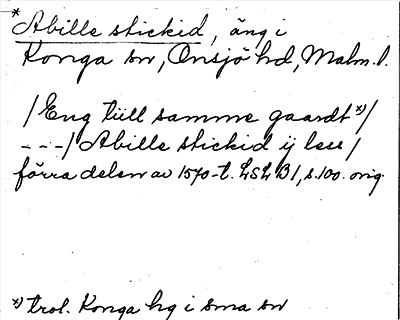 * Abille stickid, äng i
Konga sn, Onsjö hd, Malm. l.
/Eng till samme gaardt x)/
- - -/ Abille stickid ij less/
förra delen av 1570-t. LSL B1, s. 100. orig.
x) trol. Konga hg i sma sn